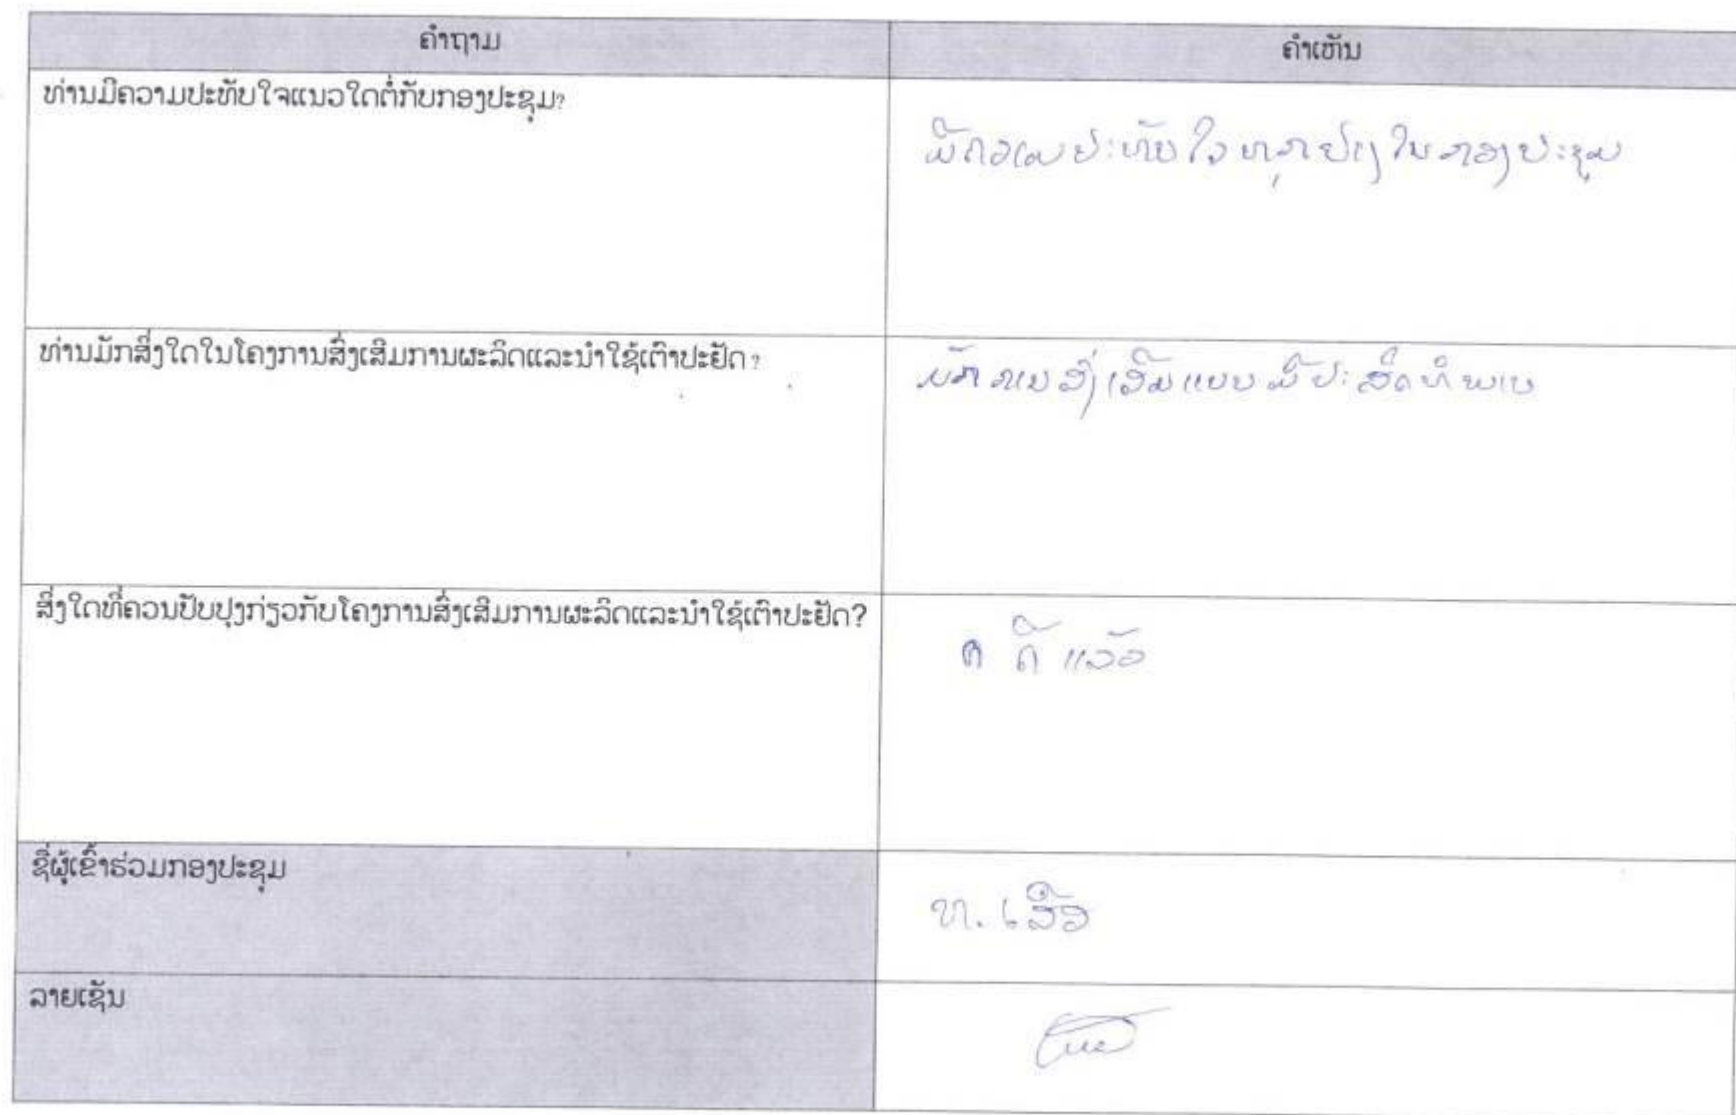 ຄຳຖາມ
ຄຳເຫັນ
ທ່ານມີຄວາມປະທັບໃຈແນວໃດຕໍ່ກັບກອງປະຊຸມ?
ມີຄວາມປະທັບໃຈທຸກຢ່າງໃນກອງປະຊຸມ
ທ່ານມັກສິ່ງໃດໃນໂຄງການສົ່ງເສີມການຜະລິດແລະນຳໃຊ້ເຕົາປະຢັດ?
ມັກການສົ່ງເສີມແບບມີປະສິດທິພາບ
ສິ່ງໃດທີ່ຄວນປັບປຸງກ່ຽວກັບໂຄງການສົ່ງເສີມການຜະລິດແລະນຳໃຊ້ເຕົາປະຢັດ?
ດີແລ້ວ
ຊື່ຜູ້ເຂົ້າຮ່ວມກອງປະຊຸມ
ທ. ເສືອ
ລາຍເຊັນ